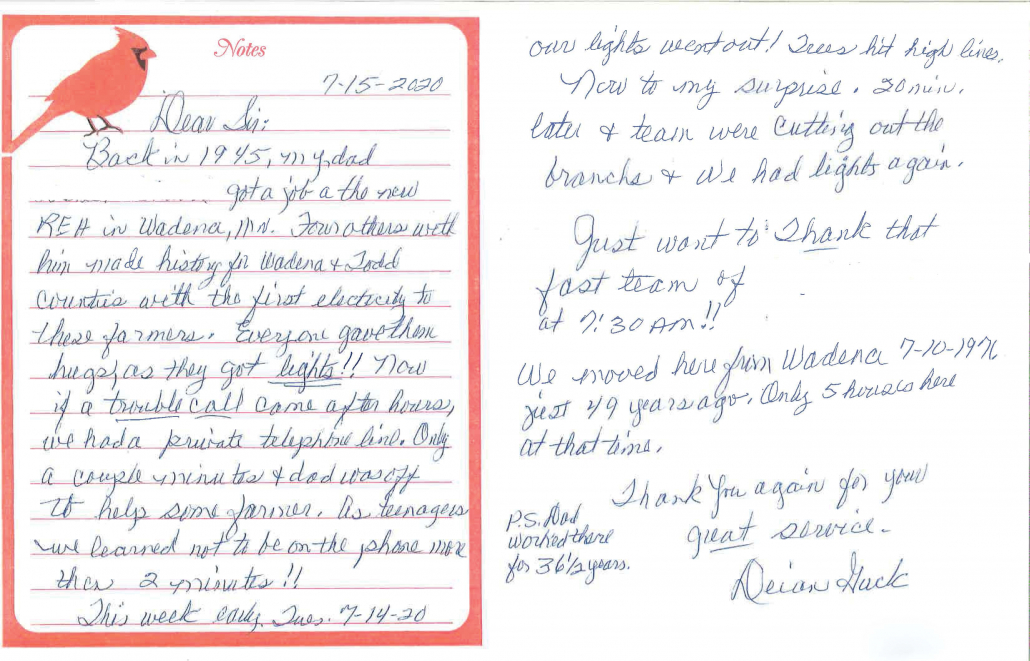 Notes
7-15-2020
Dear Sir:
Back in 1945, my dad
got a job a the new
REA in Wadena, MN. Four others with
him made history for Wadena & Todd
Counties with the first electricity to
these farmers. Everyone gave them
hugs, as they got lights!! Now
if a trouble call came after hours,
we had a private telephone line. Only
a couple minutes & dad was off
to help some farmer. As teenagers
we learned not to be on the phone more
then 2 minutes!!
This week early, Tues. 7-14-20
our lights went out! Trees hit high lines.
Now to my surprise. 20 min.
later & team were cutting out the
branchs & we had lights again.
Just want to Thank that
fast team of
at 7:30 AM!!
We moved here from Wadena 7-10-1971
just 49 years ago. Only 5 houses here
at that time.
Thank You again for your
great service.
P.S. Dad
worked there
for 36 1/2 years.